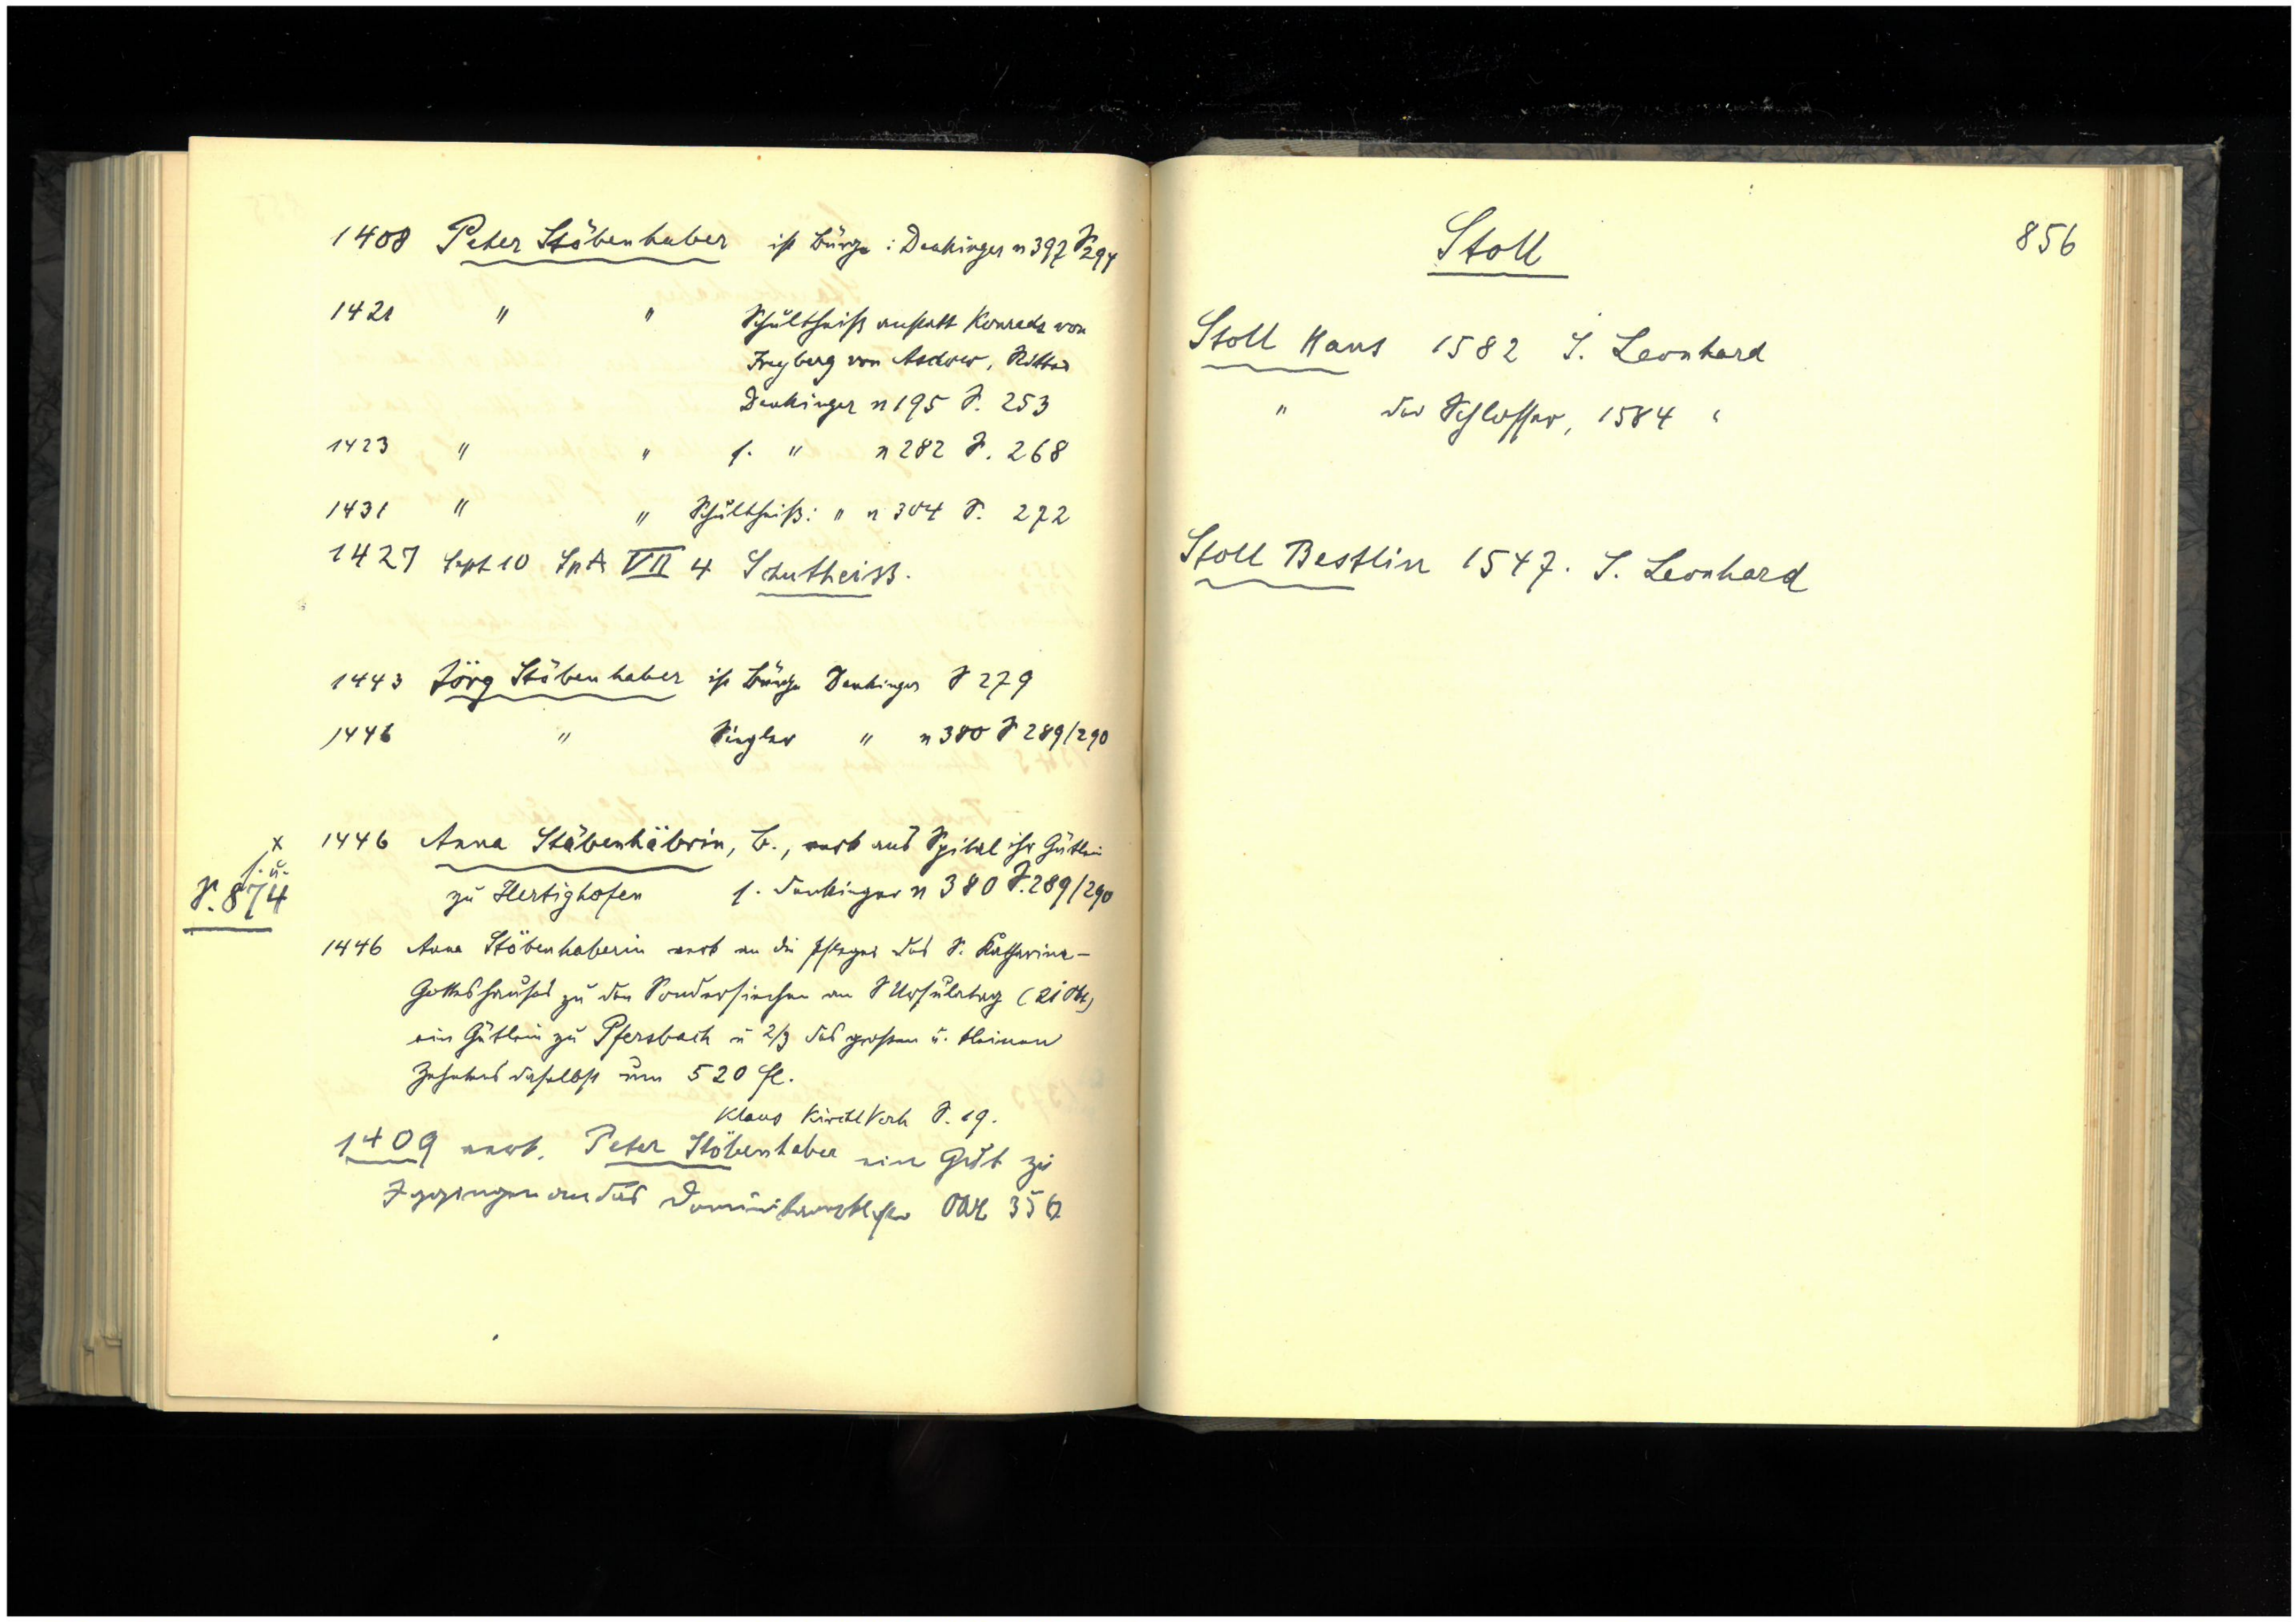 1408 Peter Stöbenhaber ist Bürge: Denkinger n 397 S 294
1421 " " Schultheiß anstatt Konrads von
Freyberg von Aschow, Ritter
Denkinger n 195 S. 253
1423 " " s. " n 282 S. 268
1431 " " Schultheiß: " n 304 S. 272
1427 Sept 10 Sp A VII 4 Schutheiss.
1443 Jörg Stöbenhaber ist Bürge Denkinger S 279
1446 " Siegler " n 380 S 289/290
x 1446 Anna Stäbenhäbrin, B., verk ans Spital ihr Gütlein
s. u.
S. 874
zu Hertighofen s. Denkinger n 380 S. 289/290
1446 Anna Stöbenhaberin verk an die Pfleger des S. Katharina-
Gotteshauses zu den Sondersiechen an S Ursulatag (21 Okt)
ein Gütlein zu Pfersbach u 2/3 des großen u. kleinen
Zehntens daselbst um 520 fl.
Klaus Kirchl S. 19.
1409 verk. Peter Stöbenhaber ein Gut zu
Iggingen an das Dominikanerkloster OAB 356
856
Stoll
Stoll Hans 1582 S. Leonhard
" der Schlosser, 1584 "
Stoll Bestlin 1547. S. Leonhard